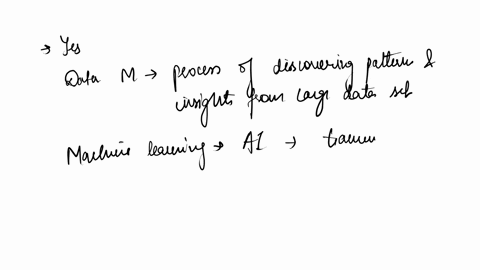 → Yes
Data M → process of discovering pattern &
insights from large data set
Machine learning → AI →